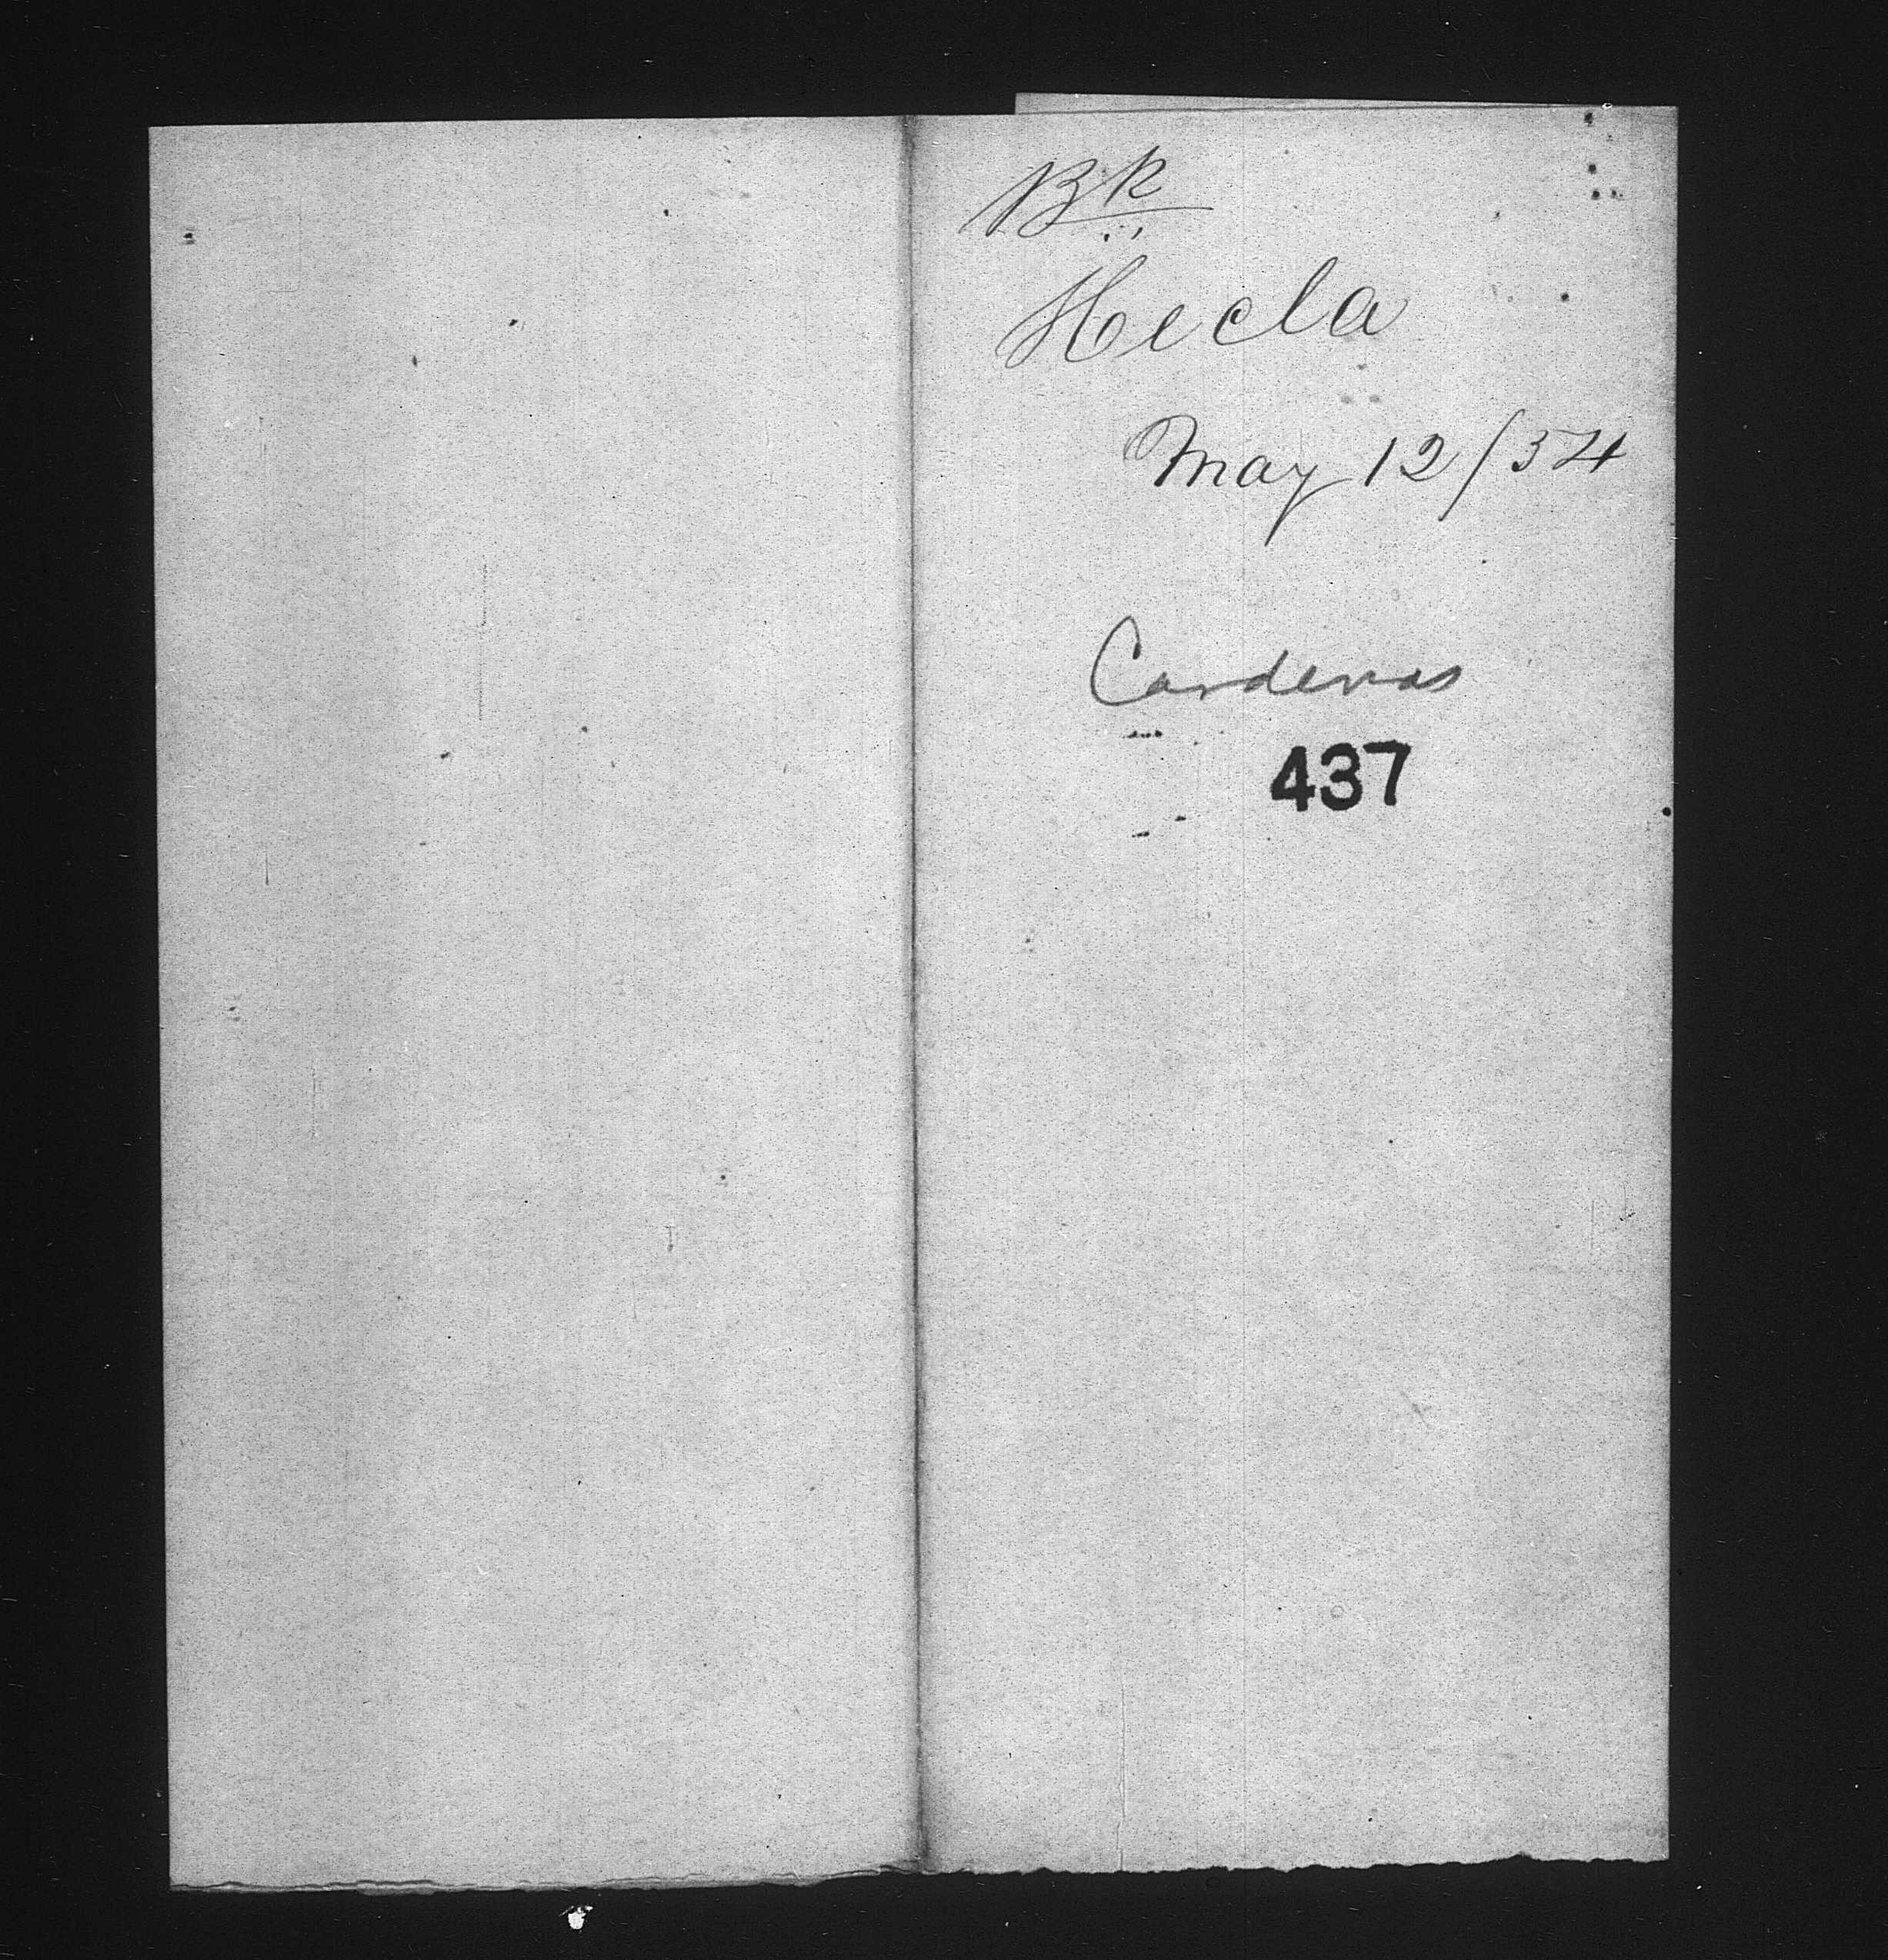 Bk
Hecla
May 12/54
Cardenas
437